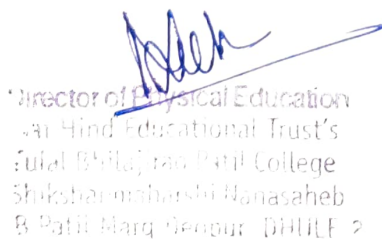 Director of Physical Education
Jai Hind Educational Trust's
Patil College
Shikshanmaharshi Nanasaheb
Patil Marg Deopur, DHULE